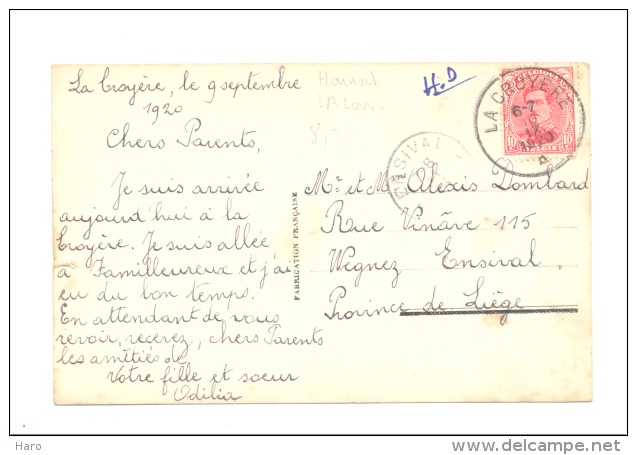 La Croyère, le 9 septembre
1920
Chers Parents,
Je suis arrivée
aujourd'hui à la
Croyère. Je suis allée
à Familleureux et j'ai
eu du bon temps.
En attendant de vous
revoir, recevez, chers Parents
les amitiés de
Votre fille et soeur
Odilia
Hainaut
LA Louv.
8,-
H.D
FABRICATION FRANÇAISE
ENSIVAL
8
LA CROYERE
6-7
IX
1920
10 10
BELGIË
Mr et M Alexis Dombard
Rue Vinâve 115
Wegnez Ensival
Province de Liège
Haro
www.delcampe.net